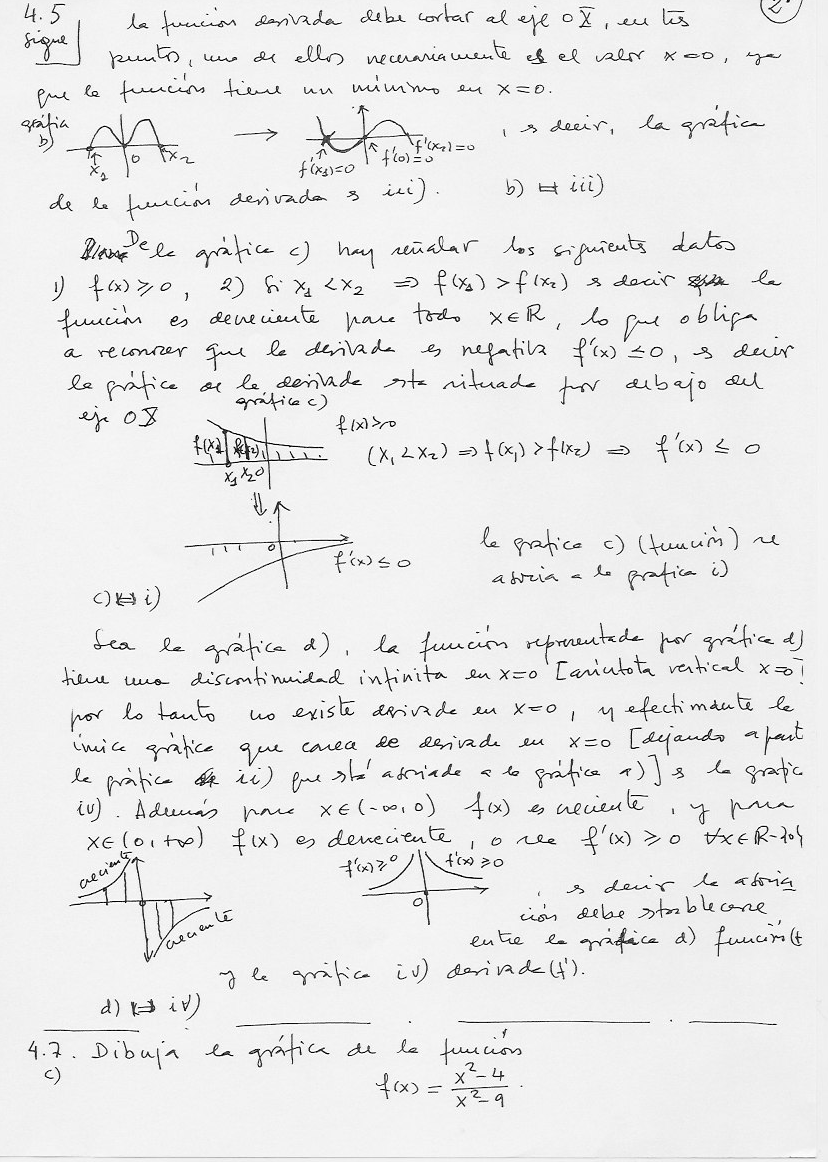 4.5
sigue
2
la función derivada debe cortar al eje OX, en tres
puntos, uno de ellos necesariamente es el valor x=0, ya
que la función tiene un mínimo en x=0.
gráfica
b)
x₁ 0 x₂
f'(x₁)=0 f'(0)=0 f'(x₂)=0
, es decir, la gráfica
de la función derivada es iii). b) ↔ iii)
De la gráfica c) hay señalar los siguientes datos
1) f(x) ≥ 0, 2) Si x₁ < x₂ ⇒ f(x₁) > f(x₂) es decir la
función es decreciente para todo x∈ℝ, lo que obliga
a reconocer que la derivada es negativa f'(x) ≤ 0, es decir
la gráfica de la derivada esta situada por debajo del
eje OX
gráfica c)
f(x₁) f(x₂)
x₁ x₂ 0
f(x)>0
(x₁ < x₂) ⇒ f(x₁) > f(x₂) ⇒ f'(x) ≤ 0
⇓
0
f'(x) ≤ 0
la grafica c) (función) se
asocia a la grafica i)
c) ↔ i)
Sea la gráfica d), la función representada por gráfica d)
tiene una discontinuidad infinita en x=0 [asíntota vertical x=0]
por lo tanto no existe derivada en x=0, y efectivamente la
única gráfica que carece de derivada en x=0 [dejando apart
la gráfica ii) que stá asociada a la gráfica a)] es la grafic
iv). Además para x∈(-∞,0) f(x) es creciente, y para
x∈(0,+∞) f(x) es decreciente, o sea f'(x) ≥ 0 ∀x∈ℝ-{0}
creciente
creciente
f'(x) ≥ 0 f'(x) ≥ 0
0
, es decir la asocia
ción debe stablecerse
entre la gráfica d) función (f
y la gráfica iv) derivada (f').
d) ↔ iv)
4.7. Dibuja la gráfica de la función
c)
f(x) = x²-4 / x²-9 .